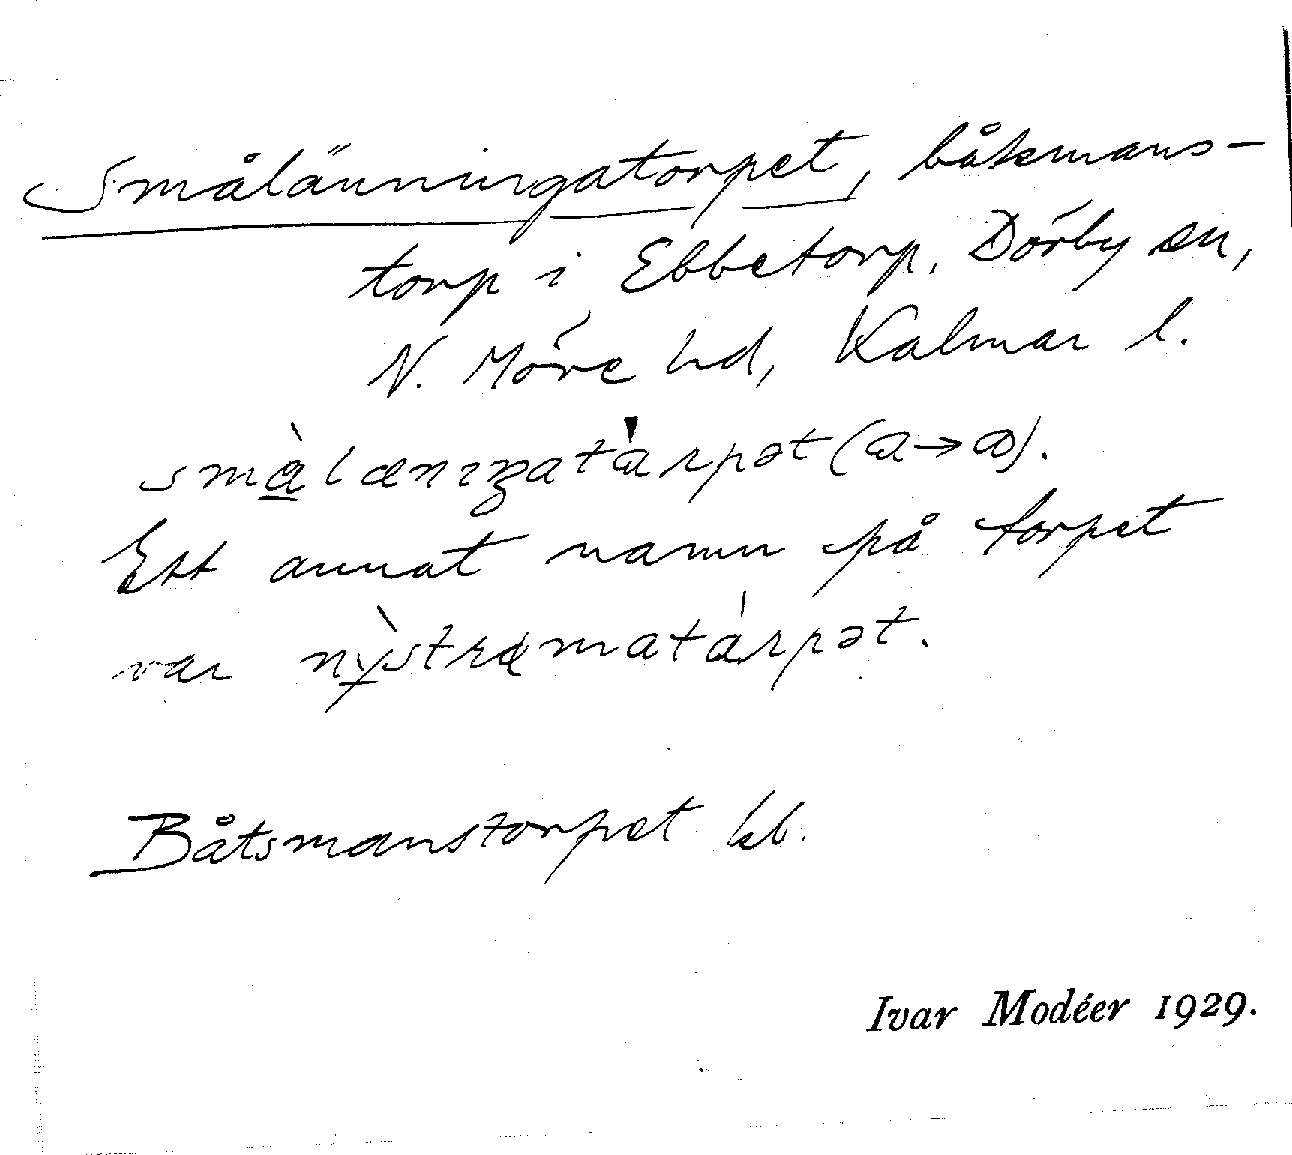 Smålänningatorpet, båtsmans-
torp i Ebbetorp, Dörby sn,
N. Möre hd, Kalmar l.
små̀lænıŋatàrpət (a→ɷ).
Ett annat namn på torpet
var nỳstrɷmatárpət.
Båtsmanstorpet kb.
Ivar Modéer 1929.